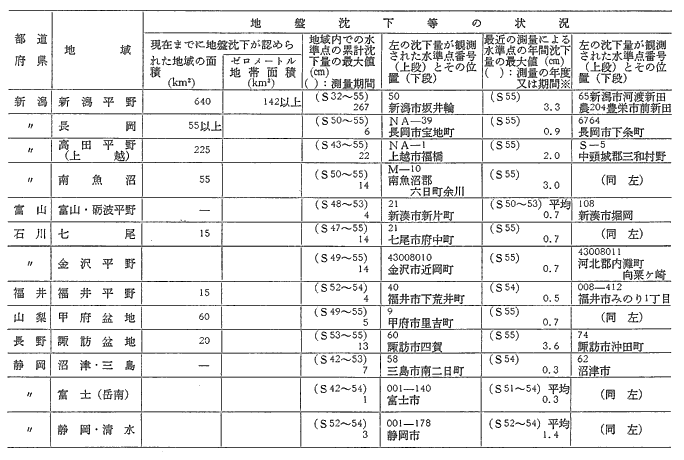 地盤沈下等の状況
都道府県 地域 現在までに地盤沈下が認められた地域の面積(km²) ゼロメートル地帯面積(km²) 地域内での水準点の累計沈下量の最大値(cm)( ):測量期間 左の沈下量が観測された水準点番号(上段)とその位置(下段) 最近の測量による水準点の年間沈下量の最大値(cm)( ):測量の年度又は期間※ 左の沈下量が観測された水準点番号(上段)とその位置(下段)
新潟 新潟平野 640 142以上 (S32~55) 267 50 新潟市坂井輪 (S55) 3.3 65新潟市河渡新田 農204豊栄市前新田
〃 長岡 55以上 (S50~55) 6 NA―39 長岡市宝地町 (S55) 0.9 6764 長岡市下条町
〃 高田平野(上越) 225 (S43~55) 22 NA―1 上越市福橋 (S55) 2.0 S―5 中頸城郡三和村野
〃 南魚沼 55 (S50~55) 14 M―10 南魚沼郡六日町余川 (S55) 3.0 (同左)
富山 富山・砺波平野 ― (S48~53) 4 21 新湊市新片町 (S50~53)平均 0.7 108 新湊市堀岡
石川 七尾 15 (S47~55) 14 21 七尾市府中町 (S55) 0.7 (同左)
〃 金沢平野 (S49~55) 14 43008010 金沢市近岡町 (S55) 0.7 43008011 河北郡内灘町向粟ヶ崎
福井 福井平野 15 (S52~54) 4 40 福井市下荒井町 (S54) 0.5 008―412 福井市みのり1丁目
山梨 甲府盆地 60 (S49~55) 5 9 甲府市里吉町 (S55) 0.7 (同左)
長野 諏訪盆地 20 (S53~55) 13 60 諏訪市四賀 (S55) 3.6 74 諏訪市沖田町
静岡 沼津・三島 ― (S42~53) 7 58 三島市南二日町 (S54) 0.3 62 沼津市
〃 富士(岳南) (S42~54) 1 001―140 富士市 (S51~54)平均 0.3 (同左)
〃 静岡・清水 (S52~54) 3 001―178 静岡市 (S52~54)平均 1.4 (同左)